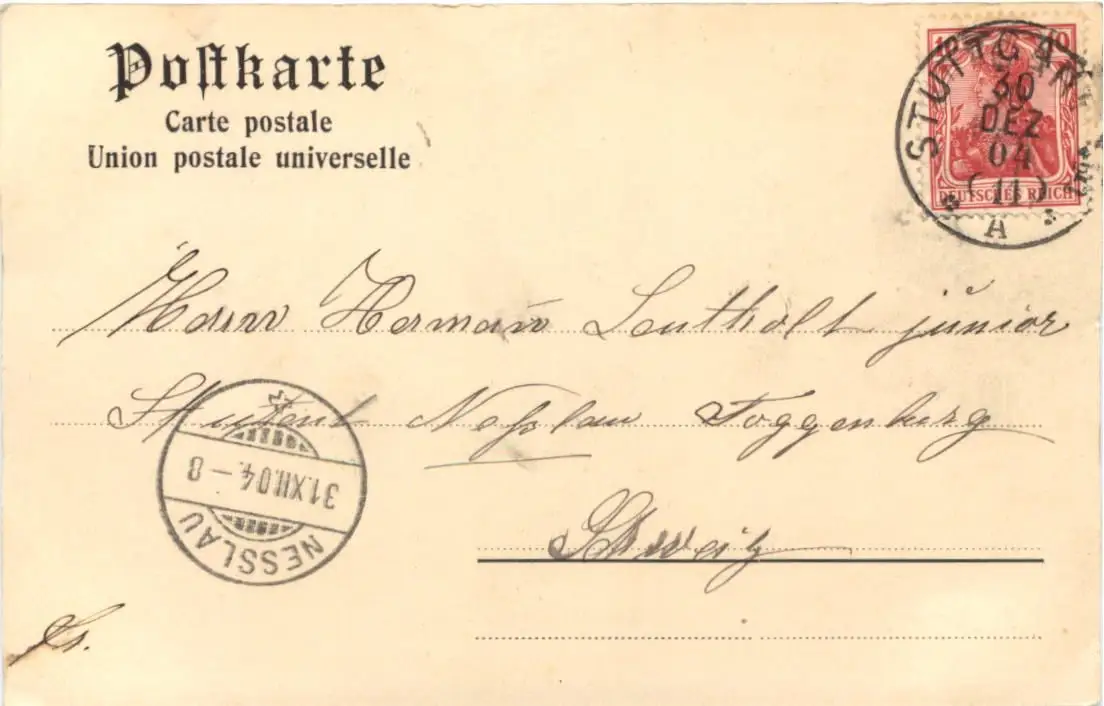 Postkarte
Carte postale
Union postale universelle
10 10
DEUTSCHES REICH
STUTTGART
30
DEZ
04
(11)
A
Herrn Hermann Leuthold junior
Student Neßlau Toggenburg
Schweiz
31.XII.04.-8
NESSLAU